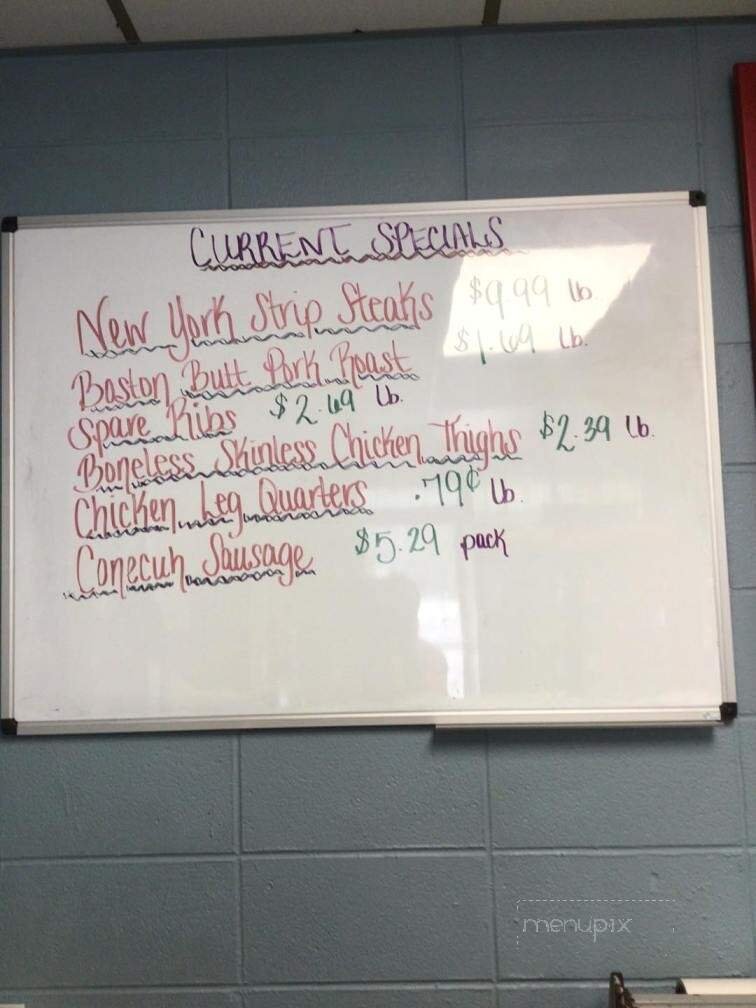 CURRENT SPECIALS
New York Strip Steaks $9.99 lb.
Boston Butt Pork Roast $1.69 lb.
Spare Ribs $2.69 lb.
Boneless Skinless Chicken Thighs $2.39 lb.
Chicken Leg Quarters .79¢ lb.
Conecuh Sausage $5.29 pack
menupix